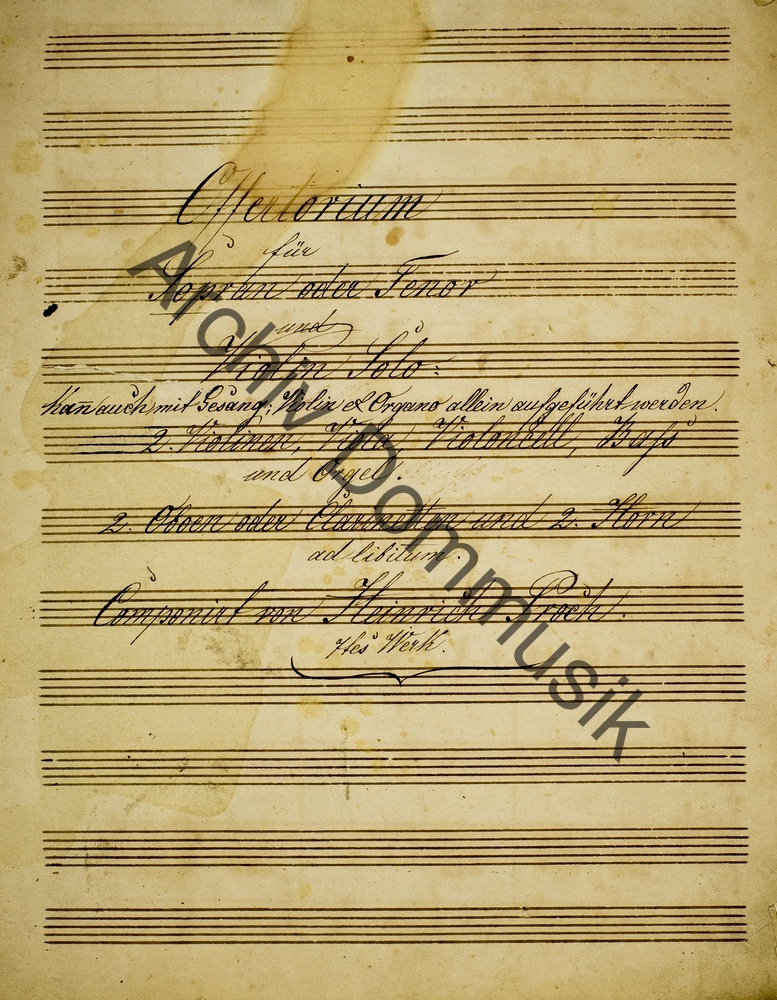 Offertorium
für
Sopran oder Tenor
und
Violin Solo:
kan̄ auch mit Gesang, Violin et Organo allein aufgeführt werden.
2. Violinen, Viola, Violoncell, Baſs
und Orgel.
2. Oboen oder Clarinetten und 2. Horn
ad libitum.
Componirt von Heinrich Proch.
7tes Werk.
Archiv Dommusik